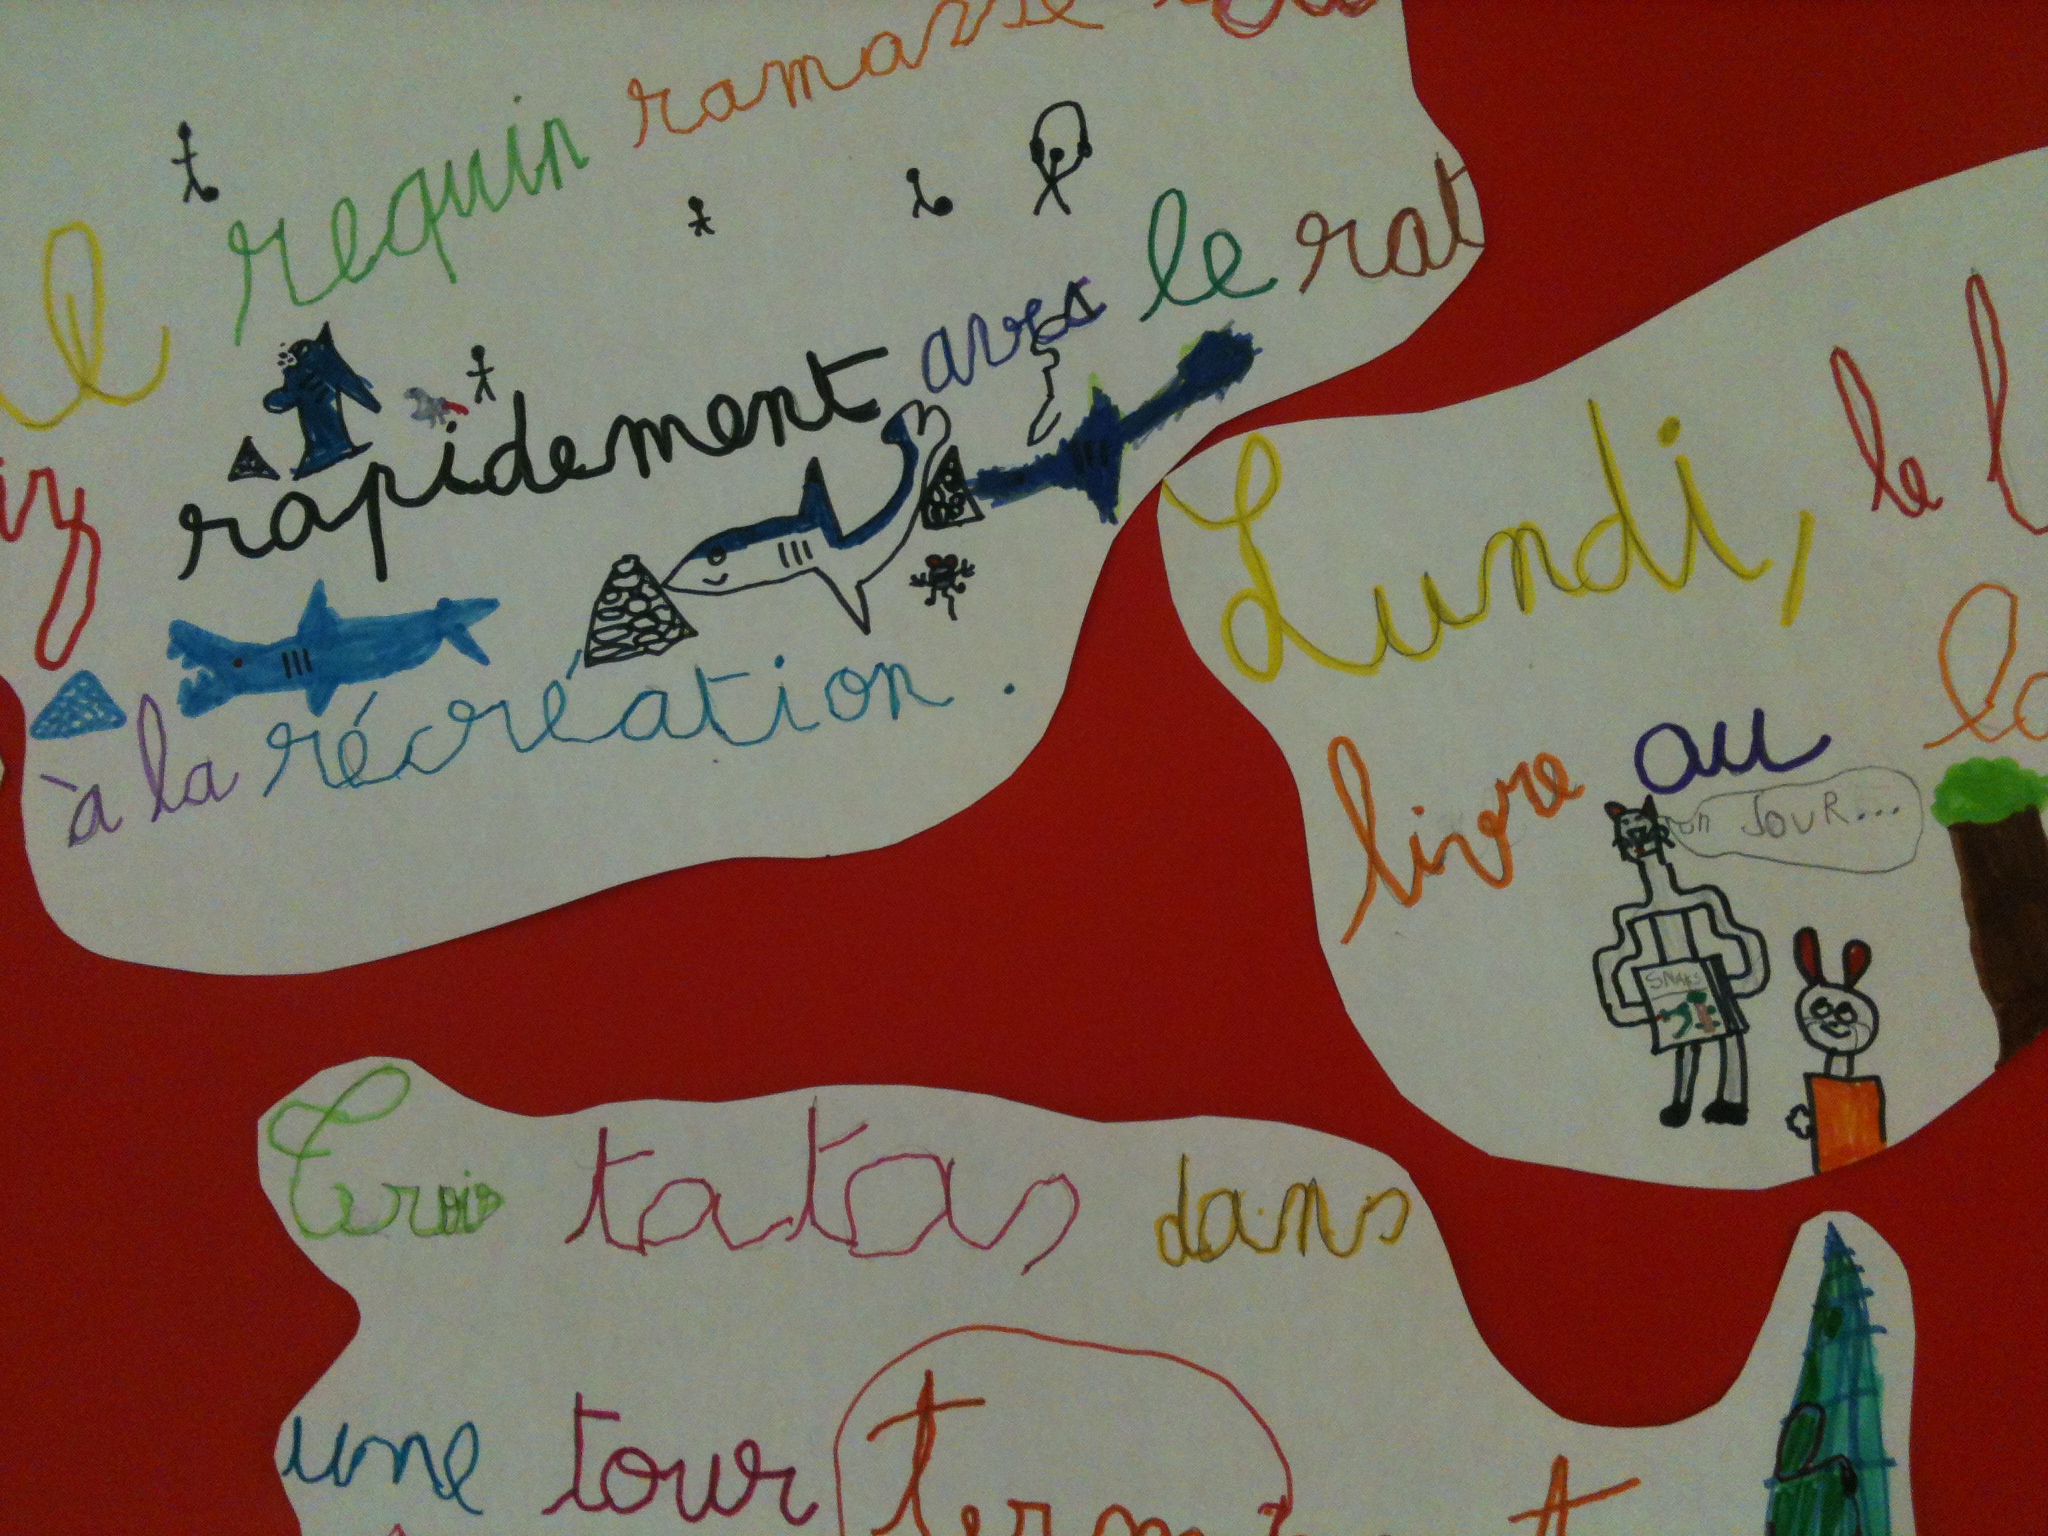 requin ramasse
riz rapidement avec le rat
à la récréation.
Lundi, le l
livre au
un JOUR...
SNAKS
Trois tatas dans
une tour